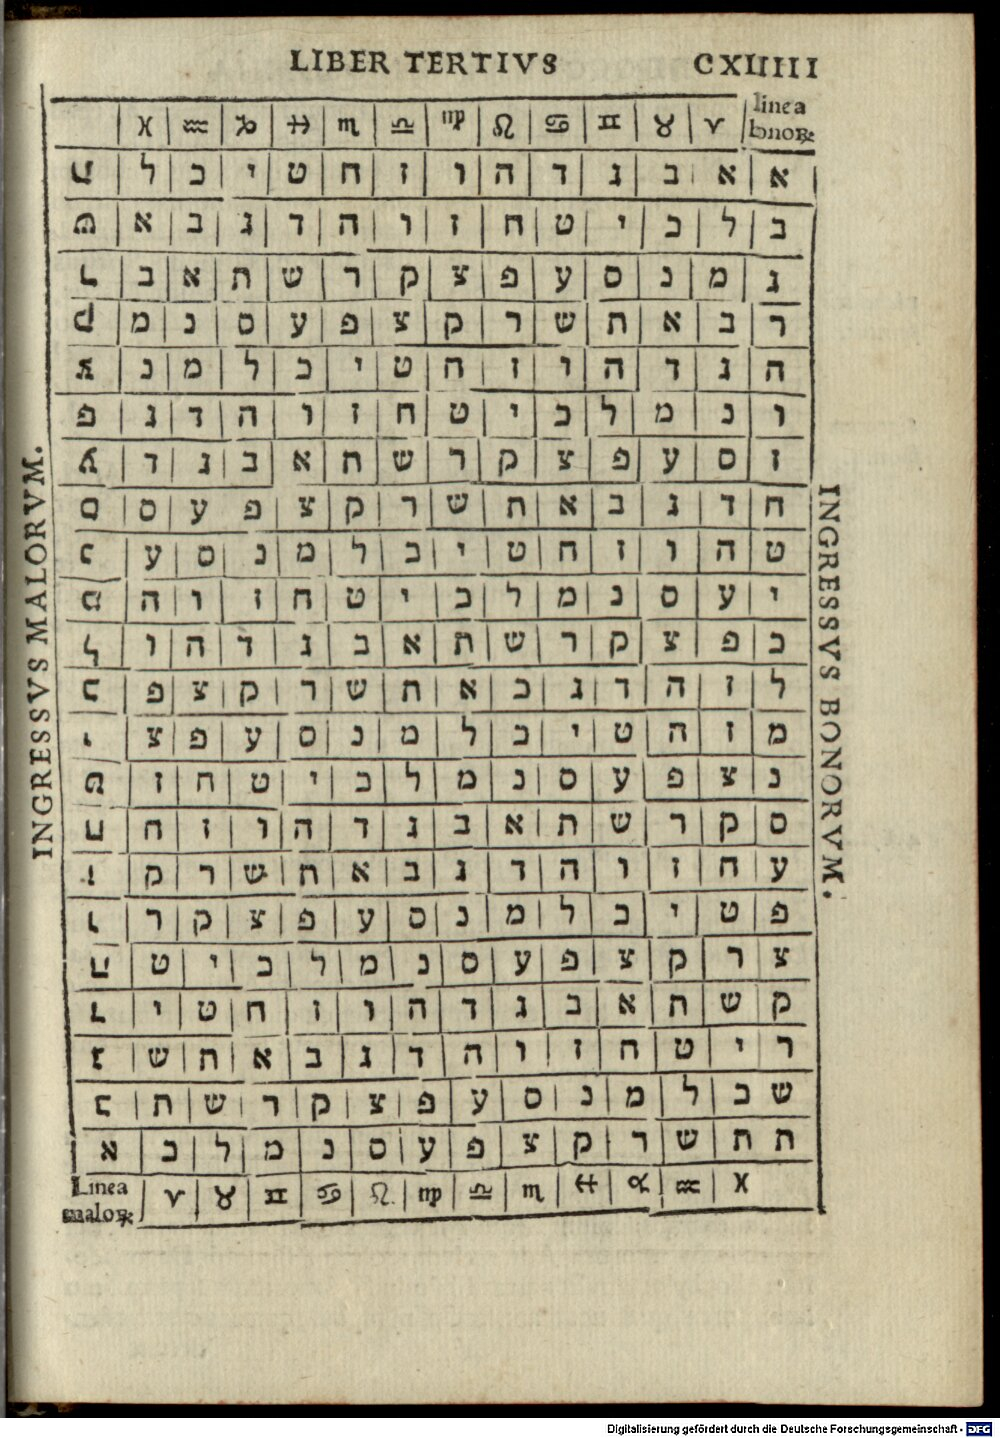 LIBER TERTIVS CXLIIII
linea bonoꝝ ♈ ♉ ♊ ♋ ♌ ♍ ♎ ♏ ♐ ♑ ♒ ♓
א א ב ג ד ה ו ז ח ט י כ ל
ב ל כ י ט ח ז ו ה ד ג ב א
ג מ נ ס ע פ צ ק ר ש ת א ב
ר ב א ת ש ר ק צ פ ע ס נ מ
ה ג ד ה ו ז ח ט י כ ל מ נ
ו נ מ ל כ י ט ח ז ו ה ד ג פ
ז ס ע פ צ ק ר ש ת א ב ג ד
ח ד ג ב א ת ש ר ק צ פ ע ס ס
ט ה ו ז ח ט י כ ל מ נ ס ע
י ע ס נ מ ל כ י ט ח ז ו ה
כ פ צ ק ר ש ת א ב ג ד ה ו
ל ז ה ד ג כ א ת ש ר ק צ פ
מ ז ה ט י כ ל מ נ ס ע פ צ
נ צ פ ע ס נ מ ל כ י ט ח ז
ס ק ר ש ת א ב ג ד ה ו ז ח
ע ח ז ו ה ד ג ב א ת ש ר ק
פ ט י כ ל מ נ ס ע פ צ ק ר
צ ר ק צ פ ע ס נ מ ל כ י ט
ק ש ת א ב ג ד ה ו ז ח ט י
ר י ט ח ז ו ה ד ג ב א ת ש
ש כ ל מ נ ס ע פ צ ק ר ש ת
ת ת ש ר ק צ פ ע ס נ מ ל כ א
Linea maloꝝ ♈ ♉ ♊ ♋ ♌ ♍ ♎ ♏ ♐ ♑ ♒ ♓
INGRESSVS MALORVM.
INGRESSVS BONORVM.
Digitalisierung gefördert durch die Deutsche Forschungsgemeinschaft - DFG